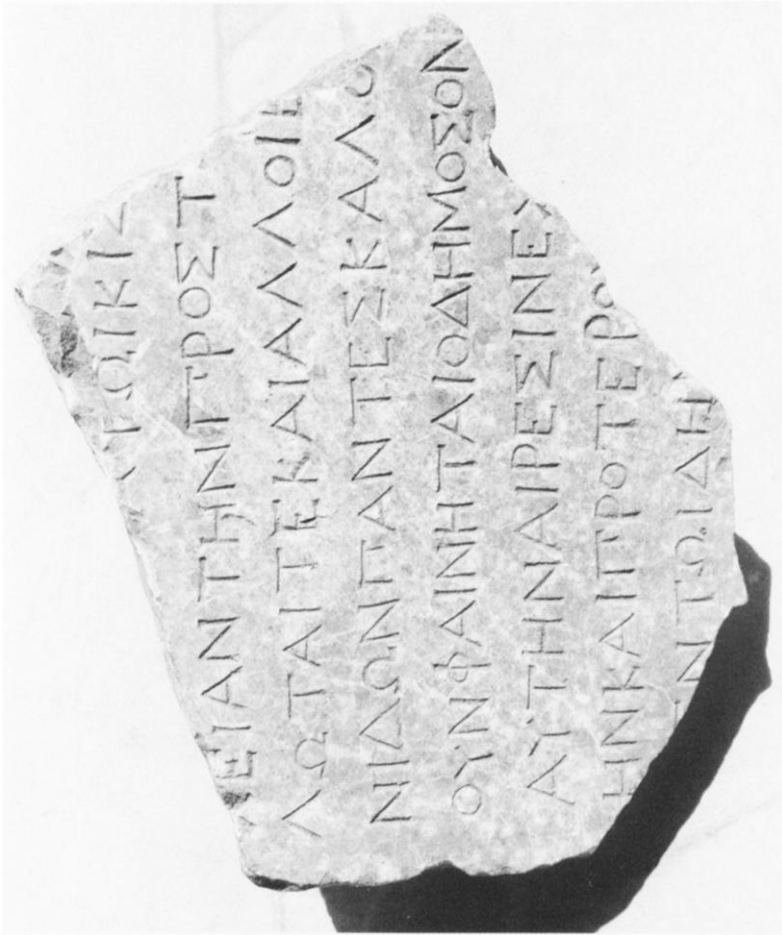 ΤΩΙΚΙ
ΕΙΑΝΤΗΝΠΡΟΣΤ
ΛΩΤΑΙΤΕΚΑΙΑΛΛΟΙΕ
ΝΙΔΩΝΠΑΝΤΕΣΚΑΛΩ
ΟΥΝΦΑΙΝΗΤΑΙΟΔΗΜΟΣΟΝ
ΑΥΤΗΝΑΙΡΕΣΙΝΕΧ
ΗΝΚΑΙΠΡΟΤΕΡΟ
ΝΤΩΙΔΗ